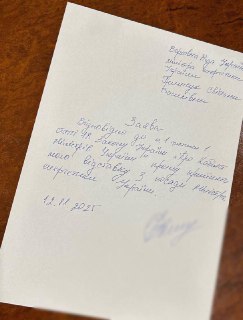 Верховна Рада України
міністра енергетики
України
Гринчук Світлани
Василівни
Заява
Відповідно до ч. 1 частини 1
статті 18 Закону України "Про Кабінет
Міністрів України" прошу прийняти
мою відставку з посади міністра
енергетики України.
12.11.2025